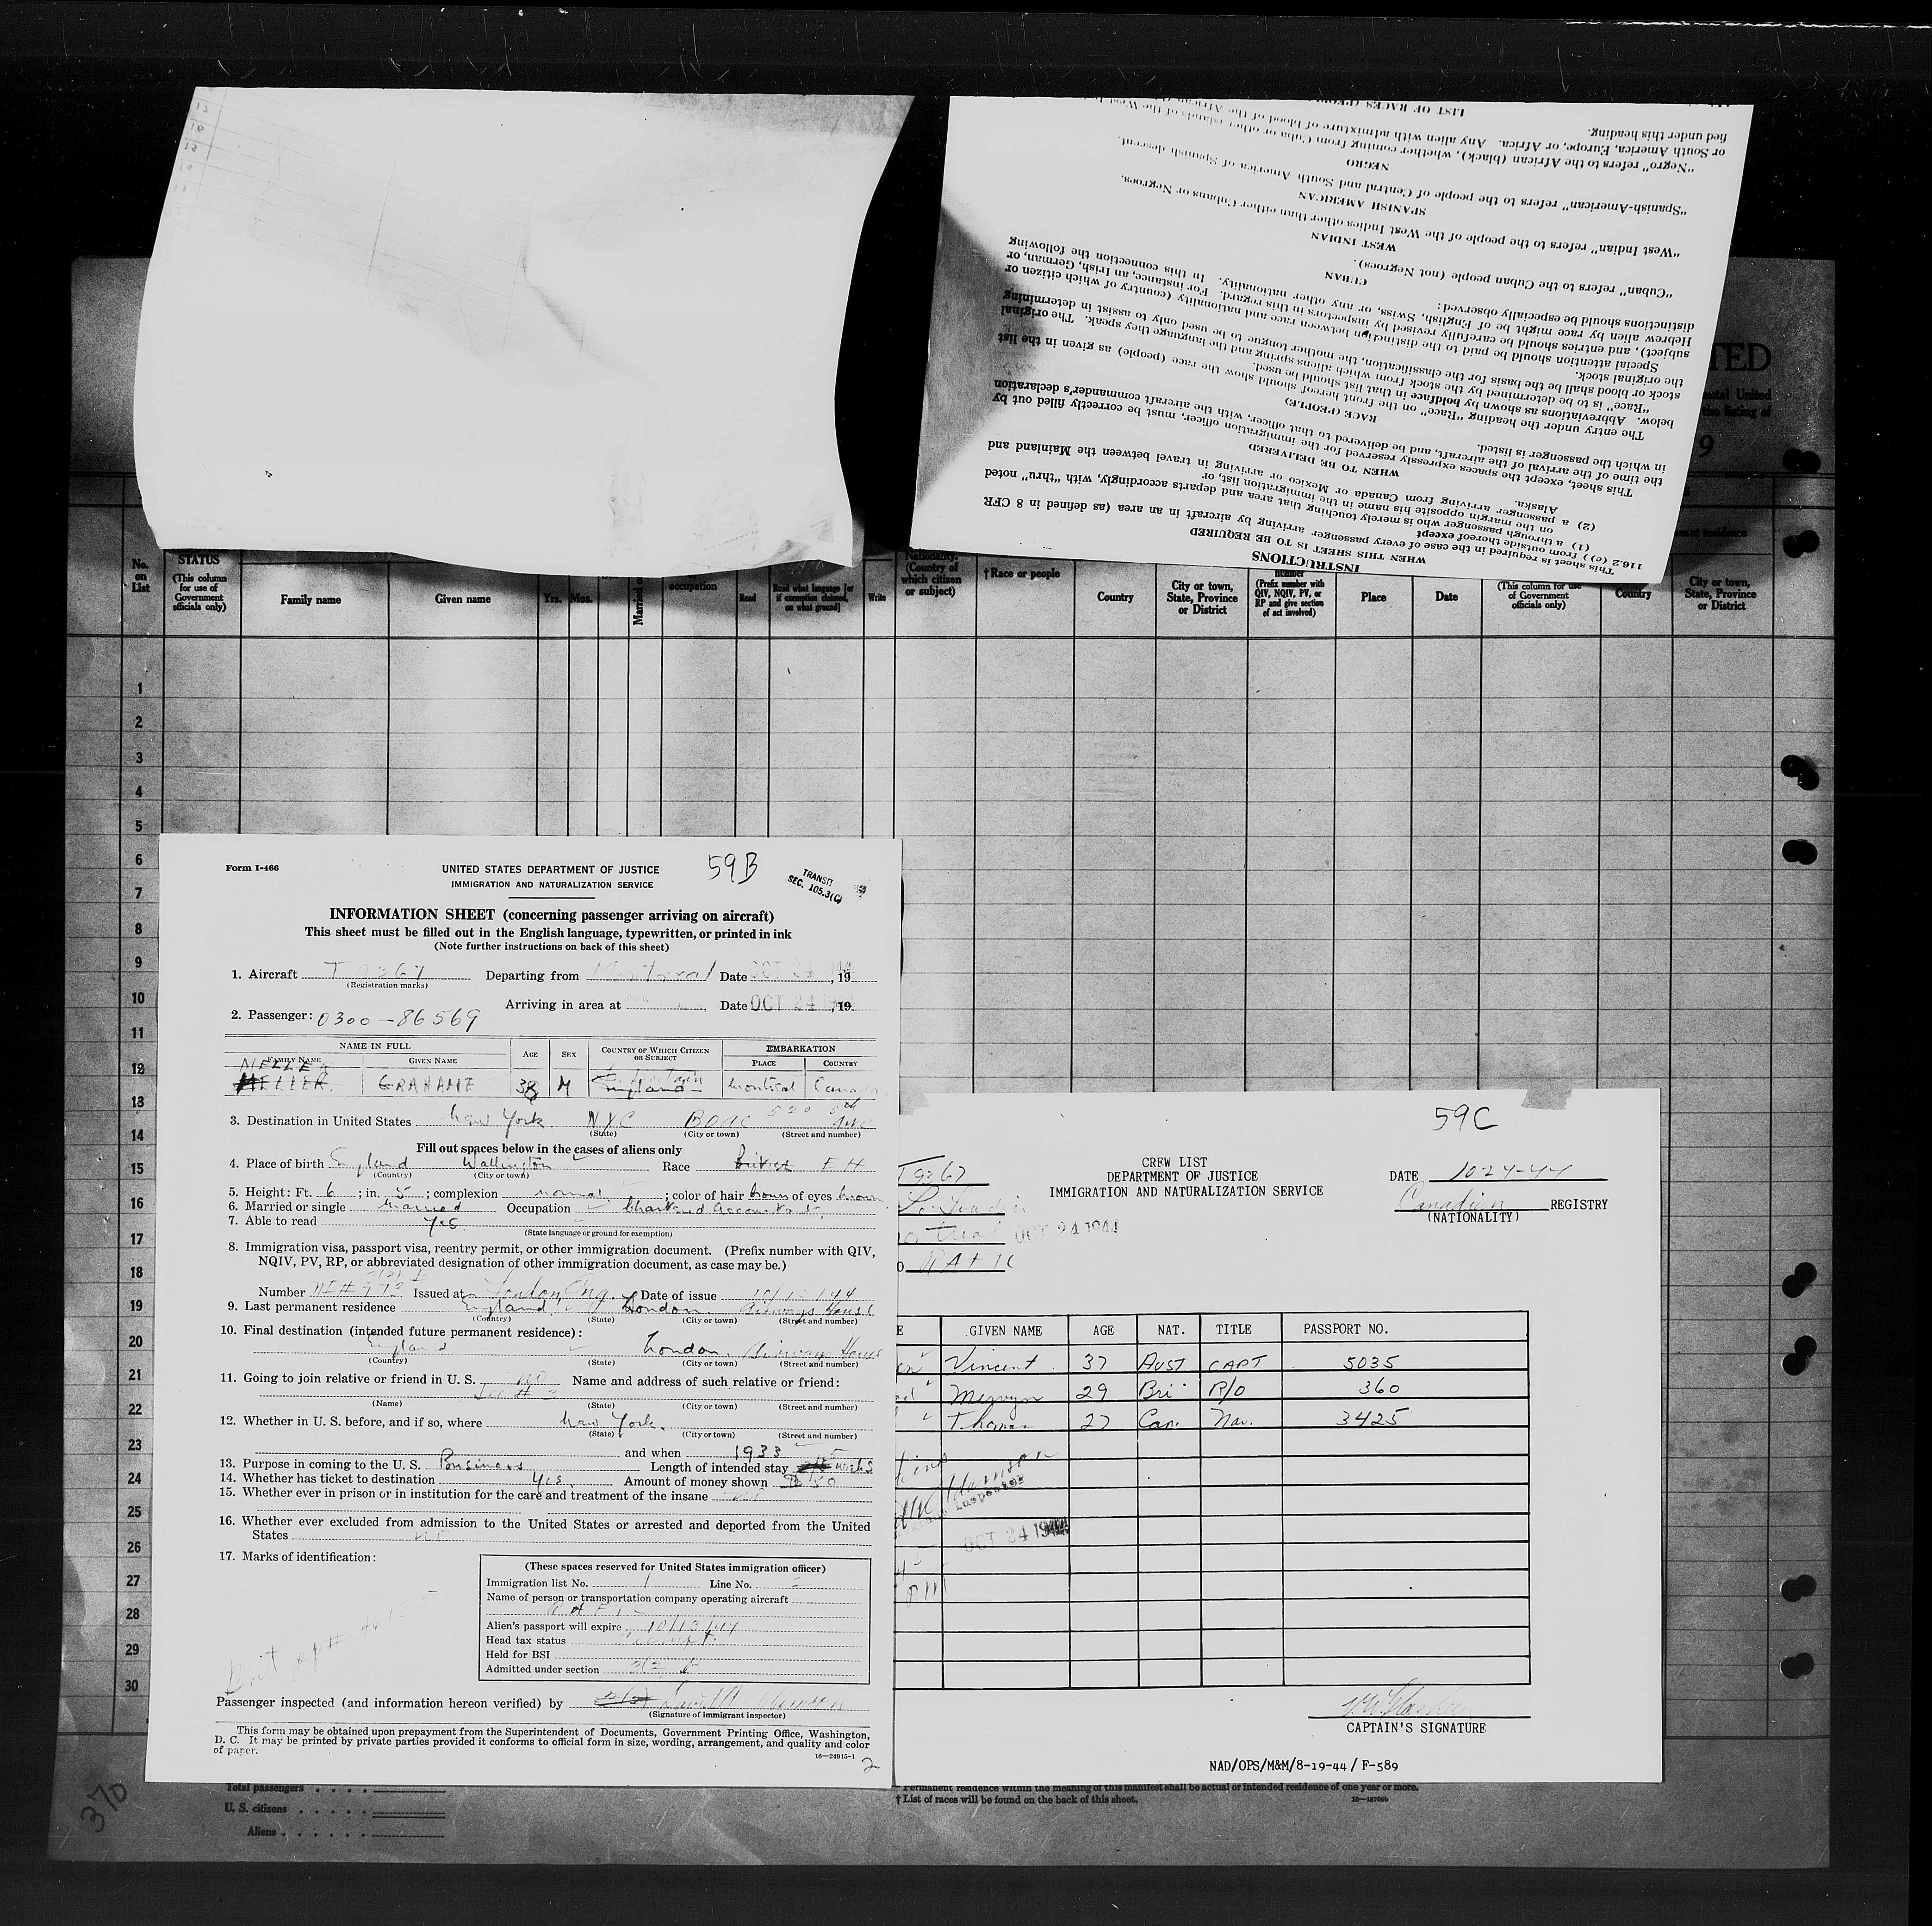 LIST OF RACES
fied under this heading.
or South America, Europe, or Africa. Any alien with admixture of blood of the African
"Negro" refers to the African (black), whether coming from Cuba or other islands of the West
NEGRO
"Spanish-American" refers to the people of Central and South America of Spanish descent.
SPANISH AMERICAN
"West Indian" refers to the people of the West Indies other than either Cubans or Negroes.
WEST INDIAN
"Cuban" refers to the Cuban people (not Negroes).
CUBAN
distinctions should be especially observed:
Hebrew alien by race might be of English, Swiss, or any other nationality. In this connection the following
subject), and entries should be carefully revised by inspectors in this regard. For instance, an Irish, German, or
Special attention should be paid to the distinction between race and nationality (country of which citizen or
the original stock.
stock or blood shall be the basis for the classification, the mother tongue to be used only to assist in determining
"Race" is to be determined by the stock from which aliens spring and the language they speak. The original
below. Abbreviations as shown by boldface in that list should be used.
The entry under the heading "Race" on the front hereof should show the race (people) as given in the list
RACE (PEOPLE)
in which the passenger is listed.
the time of the arrival of the aircraft, and be delivered to that officer, with the aircraft commander's declaration
This sheet, except the spaces expressly reserved for the immigration officer, must be correctly filled out by
WHEN TO BE DELIVERED
Alaska.
(2) a passenger arriving from Canada or Mexico or arriving in travel between the Mainland and
on the margin opposite his name in the immigration list, or
(1) a through passenger who is merely touching that area and departs accordingly, with "thru" noted
116.2 (c)) from outside thereof except
This sheet is required in the case of every passenger arriving by aircraft in an area (as defined in 8 CFR
WHEN THIS SHEET IS TO BE REQUIRED
INSTRUCTIONS
TED
the listing of
9
No. on List
STATUS
(This column for use of Government officials only)
Family name
Given name
Yrs. Mos.
occupation
Read
Read what language [or if exemption claimed, on what ground]
Write
Nationality. (Country of which citizen or subject)
† Race or people
Country
City or town, State, Province or District
number (Prefix number with QIV, NQIV, PV, or RP and give section of act involved)
Place
Date
(This column for use of Government officials only)
Country
City or town, State, Province or District
1
2
3
4
5
6
7
8
9
10
11
12
13
14
15
16
17
18
19
20
21
22
23
24
25
26
27
28
29
30
Form I-466
UNITED STATES DEPARTMENT OF JUSTICE
IMMIGRATION AND NATURALIZATION SERVICE
59B
TRANSIT
SEC. 105.3(C)
INFORMATION SHEET (concerning passenger arriving on aircraft)
This sheet must be filled out in the English language, typewritten, or printed in ink
(Note further instructions on back of this sheet)
1. Aircraft T 9267 Departing from Montreal Date OCT 24 1944, 19
(Registration marks)
Arriving in area at Date OCT 24, 19
2. Passenger: 0300-86569
NAME IN FULL AGE SEX COUNTRY OF WHICH CITIZEN OR SUBJECT EMBARKATION
FAMILY NAME GIVEN NAME PLACE COUNTRY
MELLER GRAHAME 38 M England Montreal Canada
3. Destination in United States New York NYC BOAC 520 5th Ave
(State) (City or town) (Street and number)
Fill out spaces below in the cases of aliens only
4. Place of birth England Wallington Race British
(Country) (City or town)
5. Height: Ft. 6; in. ; complexion normal; color of hair brown of eyes brown
6. Married or single Married Occupation Chartered Accountant
7. Able to read Yes
(State language or ground for exemption)
8. Immigration visa, passport visa, reentry permit, or other immigration document. (Prefix number with QIV,
NQIV, PV, RP, or abbreviated designation of other immigration document, as case may be.)
Number Issued at London, Eng. Date of issue 10/13/44
9. Last permanent residence England London Airways House
(Country) (State) (City or town) (Street and number)
10. Final destination (intended future permanent residence):
England London Airways House
(Country) (State) (City or town) (Street and number)
11. Going to join relative or friend in U. S. no Name and address of such relative or friend:
(Name) (State) (City or town) (Street and number)
12. Whether in U. S. before, and if so, where New York
(State) (City or town) (Street and number)
and when 1933
13. Purpose in coming to the U. S. Business Length of intended stay weeks
14. Whether has ticket to destination Yes Amount of money shown
15. Whether ever in prison or in institution for the care and treatment of the insane no
16. Whether ever excluded from admission to the United States or arrested and deported from the United
States no
17. Marks of identification:
(These spaces reserved for United States immigration officer)
Immigration list No. 1 Line No. 2
Name of person or transportation company operating aircraft
Alien's passport will expire
Head tax status
Held for BSI
Admitted under section
Passenger inspected (and information hereon verified) by
(Signature of immigrant inspector)
This form may be obtained upon prepayment from the Superintendent of Documents, Government Printing Office, Washington,
D. C. It may be printed by private parties provided it conforms to official form in size, wording, arrangement, and quality and color
of paper.
16—24915-1
2
59C
T 9267
CREW LIST
DEPARTMENT OF JUSTICE
IMMIGRATION AND NATURALIZATION SERVICE
DATE 10-24-44
Canadian REGISTRY
(NATIONALITY)
OCT 24 1944
GIVEN NAME AGE NAT. TITLE PASSPORT NO.
Vincent 37 AUST CAPT 5035
Mervyn 29 Bri R/O 360
Thomas 27 Can. Nav. 3425
Inspector
OCT 24 1944
CAPTAIN'S SIGNATURE
NAD/OPS/M&M/8-19-44 / F-589
Permanent residence within the meaning of this manifest shall be actual or intended residence of one year or more.
† List of races will be found on the back of this sheet.
Total passengers
U. S. citizens
Aliens
370